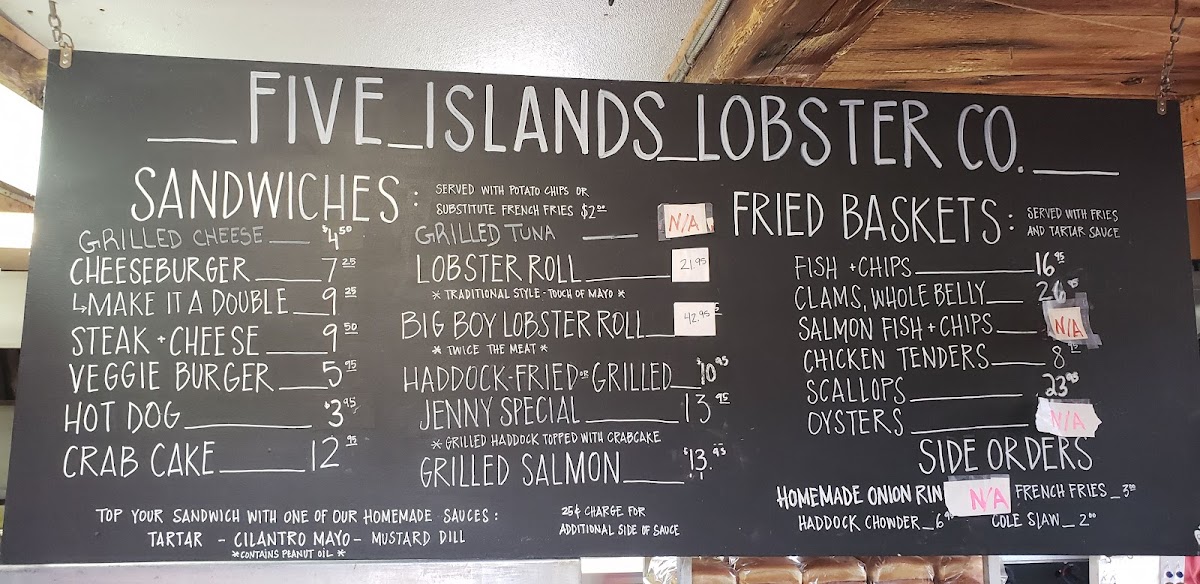 FIVE ISLANDS LOBSTER CO.
SANDWICHES: SERVED WITH POTATO CHIPS OR
SUBSTITUTE FRENCH FRIES $2.00
GRILLED CHEESE $4.50
CHEESEBURGER 7.25
↳MAKE IT A DOUBLE 9.25
STEAK + CHEESE 9.50
VEGGIE BURGER 5.95
HOT DOG $3.95
CRAB CAKE 12.95
GRILLED TUNA N/A
LOBSTER ROLL 21.95
* TRADITIONAL STYLE - TOUCH OF MAYO *
BIG BOY LOBSTER ROLL 42.95
* TWICE THE MEAT *
HADDOCK-FRIED OR GRILLED $10.95
JENNY SPECIAL 13.95
* GRILLED HADDOCK TOPPED WITH CRABCAKE
GRILLED SALMON $13.95
TOP YOUR SANDWICH WITH ONE OF OUR HOMEMADE SAUCES:
TARTAR - CILANTRO MAYO - MUSTARD DILL
*CONTAINS PEANUT OIL *
25¢ CHARGE FOR
ADDITIONAL SIDE OF SAUCE
FRIED BASKETS: SERVED WITH FRIES
AND TARTAR SAUCE
FISH + CHIPS 16.95
CLAMS, WHOLE BELLY
SALMON FISH + CHIPS N/A
CHICKEN TENDERS 8
SCALLOPS 23.95
OYSTERS N/A
SIDE ORDERS
HOMEMADE ONION RIN N/A FRENCH FRIES 3.00
HADDOCK CHOWDER 6 COLE SLAW 2.00